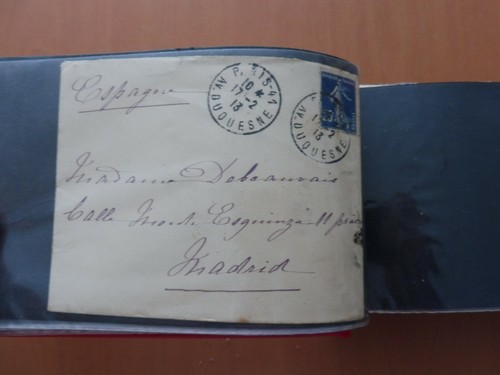 Espagne
PARIS-41
10 K
17-2
13
AV. DUQUESNE
PARIS
17-2
13
AV. DUQUESNE
Madame Debeauvais
Calle Mont Esquinza 11
Madrid